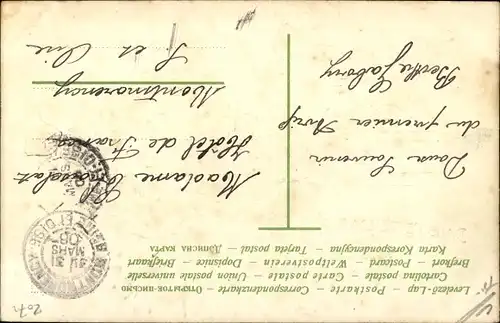 Levelező-Lap — Postkarte — Correspondenzkarte — Открытое письмо
Cartolina postale — Carte postale — Union postale universelle
Brefkort — Postcard — Weltpostverein — Dopisnice — Briefkaart
Karta Korespondencyjna — Tarjeta postal —
Doux Souvenir
du premier Avril
Berthe
Madame
Hôtel de France
Montmorency
S. et Oise
31
MARS
08
2071